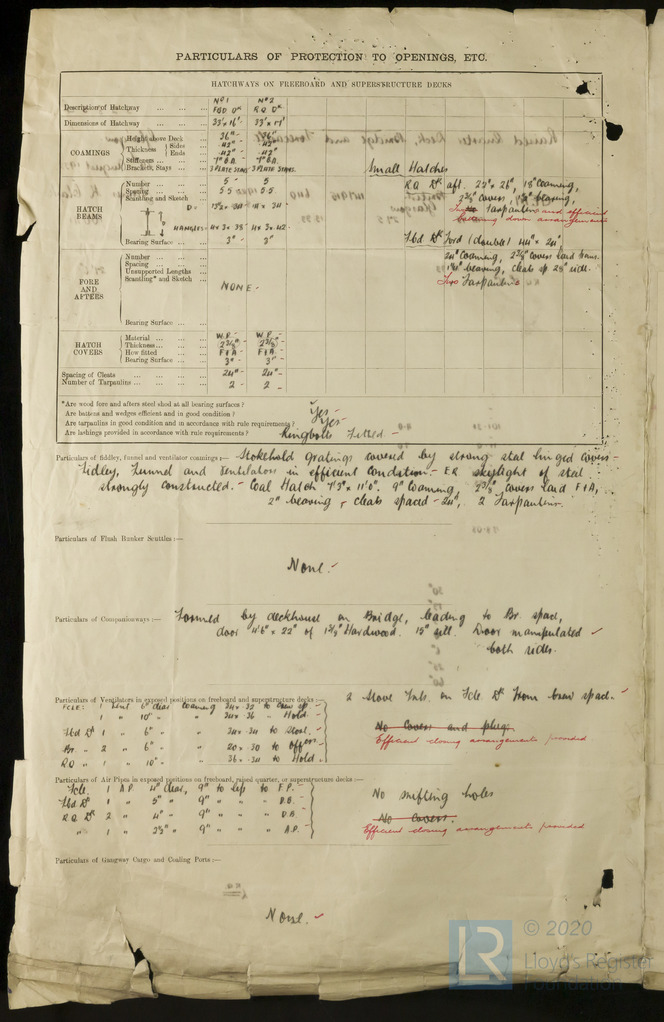 PARTICULARS OF PROTECTION TO OPENINGS, ETC.
HATCHWAYS ON FREEBOARD AND SUPERSTRUCTURE DECKS
Nº1 Nº2
Description of Hatchway ... ... ... FBD Dk R.Q. Dk
Dimensions of Hatchway ... ... ... 33' × 16' 33' × 17'
COAMINGS
Height above Deck ... 36"
Thickness Sides ... .42"
Ends ... .42" .42"
Stiffeners ... 7" B.A. 7" B.A.
Brackets, Stays ... 3 PLATE STAYS 3 PLATE STAYS
Small Hatches
HATCH BEAMS
Number ... 5 5
Spacing ... 5.5 5.5
Scantling and Sketch
Bearing Surface ... 3" 3"
R.Q. Dk aft. 18" coaming,
2 3/8" covers, bearing,
Two Tarpaulins and efficient
battening down arrangements
Fbd Dk Ford (double) 44" × 24"
24" coaming, 2 3/8" covers laid
bearing, cleats sp. 23"
Two Tarpaulins
FORE AND AFTERS
Number ...
Spacing ...
Unsupported Lengths
Scantling* and Sketch
NONE -
Bearing Surface ...
HATCH COVERS
Material ... W.P. - W.P. -
Thickness ... 2 3/8" - 2 3/8" -
How fitted ... F & A - F & A -
Bearing Surface ... 3" - 3"
Spacing of Cleats ... 24" - 24" -
Number of Tarpaulins ... 2 - 2 -
*Are wood fore and afters steel shod at all bearing surfaces?
Are battens and wedges efficient and in good condition? Yes -
Are tarpaulins in good condition and in accordance with rule requirements? Yes -
Are lashings provided in accordance with rule requirements? Ringbolts Fitted -
Particulars of fiddley, funnel and ventilator coamings:— Stokehold gratings covered by strong steel hinged covers -
Fidley, Funnel and Ventilators in efficient condition - E.R. skylight of steel
strongly constructed. - Coal Hatch 7'3" × 11'0". 9" coaming, 2 3/8" covers laid F & A,
2" bearing, cleats spaced 24", 2 Tarpaulins.
Particulars of Flush Bunker Scuttles:—
None.
Particulars of Companionways:— Formed by deckhouse on Bridge, leading to Br. space,
door 4'6" × 22" of Hardwood. 15" sill. Door manipulated
both sides.
Particulars of Ventilators in exposed positions on freeboard and superstructure decks:— 2 Stove Vents. on Fcle Dk from crew space.
FCLE: 1 Vent. 6" diar Coaming 34 × 32 to crew sp.
1 " 10" " " 34 × 36 " Hold.
Fbd Dk 1 " 6" " " 34 × 34 to Store.
Br. " 2 " 6" " " 20 × 30 to
RQ " 1 " 10" " " 36 × 34 to Hold.
No Covers and plugs.
Efficient closing arrangements provided
Particulars of Air Pipes in exposed positions on freeboard, raised quarter, or superstructure decks:—
Fcle. 1 A.P. 4" diar, 9" to lip to F.P.
Fbd Dk 1 " 5" " 9" " " " D.B.
R.Q. Dk 2 " 4" " 9" " " " D.B.
" 1 " 2 1/2" " 9" " " " A.P.
No snifting holes
No covers.
Efficient closing arrangements provided
Particulars of Gangway Cargo and Coaling Ports:—
None.
LR
© 2020
Lloyd's Register
Foundation